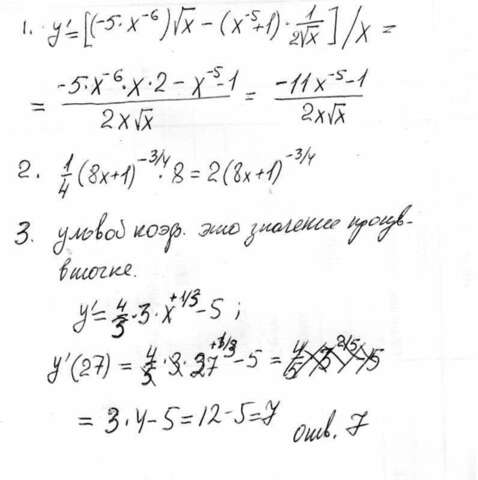 1. y'=[(-5·x⁻⁶)√x − (x⁻⁵+1)·1/(2√x)]/x =
= (-5·x⁻⁶·x·2 − x⁻⁵-1)/(2x√x) = (-11x⁻⁵-1)/(2x√x)
2. 1/4(8x+1)^(-3/4)·8 = 2(8x+1)^(-3/4)
3. уловой коэф. это значение произв-
в точке.
y'=4/3·3·x^(+1/3)-5 ;
y'(27) = 4/3·3·27^(+1/3) -5 =
= 3·4-5=12-5=7
отв. 7